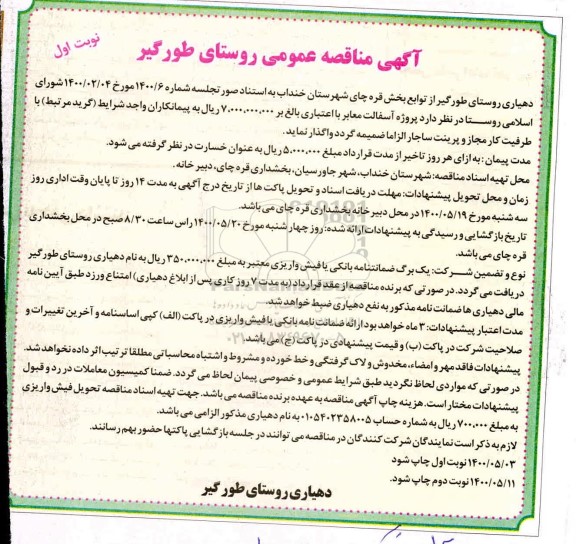 نوبت اول
آگهی مناقصه عمومی روستای طورگیر
دهیاری روستای طورگیر از توابع بخش قره چای شهرستان خنداب به استناد صورتجلسه شماره ۱۴۰۰/۶ مورخ ۱۴۰۰/۰۲/۰۴ شورای
اسلامی روستا در نظر دارد پروژه آسفالت معابر با اعتباری بالغ بر ۷.۰۰۰.۰۰۰.۰۰۰ ریال به پیمانکاران واجد شرایط (گرید مرتبط) با
ظرفیت کار مجاز و پرینت ساجار الزاما ضمیمه گردد واگذار نماید.
مدت پیمان: به ازای هر روز تاخیر از مدت قرارداد مبلغ ۵.۰۰۰.۰۰۰ ریال به عنوان خسارت در نظر گرفته می شود.
محل تهیه اسناد مناقصه: شهرستان خنداب، شهر جاورسیان، بخشداری قره چای، دبیر خانه.
زمان و محل تحویل پیشنهادات: مهلت دریافت اسناد و تحویل پاکت ها از تاریخ درج آگهی به مدت ۱۴ روز تا پایان وقت اداری روز
سه شنبه مورخ ۱۴۰۰/۰۵/۱۹ در محل دبیر خانه بخشداری قره چای می باشد.
تاریخ بازگشایی و رسیدگی به پیشنهادات ارائه شده: روز چهارشنبه مورخ ۱۴۰۰/۰۵/۲۰ راس ساعت ۸/۳۰ صبح در محل بخشداری
قره چای می باشد.
نوع و تضمین شرکت: یک برگ ضمانتنامه بانکی یا فیش واریزی معتبر به مبلغ ۳۵۰.۰۰۰.۰۰۰ ریال به نام دهیاری روستای طورگیر
دریافت می گردد. در صورتی که برنده مناقصه از عقد قرارداد (به مدت ۷ روز کاری پس از ابلاغ دهیاری) امتناع ورزد طبق آیین نامه
مالی دهیاری ها ضمانت نامه مذکور به نفع دهیاری ضبط خواهد شد.
مدت اعتبار پیشنهادات: ۳ ماه خواهد بود ارائه ضمانت نامه بانکی یا فیش واریزی در پاکت (الف) کپی اساسنامه و آخرین تغییرات و
صلاحیت شرکت در پاکت (ب) و قیمت پیشنهادی در پاکت (ج) می باشد.
پیشنهادات فاقد مهر و امضاء، مخدوش و لاک گرفتگی و خط خورده و مشروط و اشتباه محاسباتی مطلقا ترتیب اثر داده نخواهد شد.
در صورتی که مواردی لحاظ نگردید طبق شرایط عمومی و خصوصی پیمان لحاظ می گردد. ضمنا کمیسیون معاملات در رد و قبول
پیشنهادات مختار است. هزینه چاپ آگهی مناقصه به عهده برنده مناقصه می باشد. جهت تهیه اسناد مناقصه تحویل فیش واریزی
به مبلغ ۷۰۰.۰۰۰ ریال به شماره حساب ۰۱۰۵۴۰۲۳۵۸۰۰۵ به نام دهیاری مذکور الزامی می باشد.
لازم به ذکر است نمایندگان شرکت کنندگان در مناقصه می توانند در جلسه بازگشایی پاکتها حضور بهم رسانند.
۱۴۰۰/۰۵/۰۳ نوبت اول چاپ شود
۱۴۰۰/۰۵/۱۱ نوبت دوم چاپ شود.
دهیاری روستای طورگیر